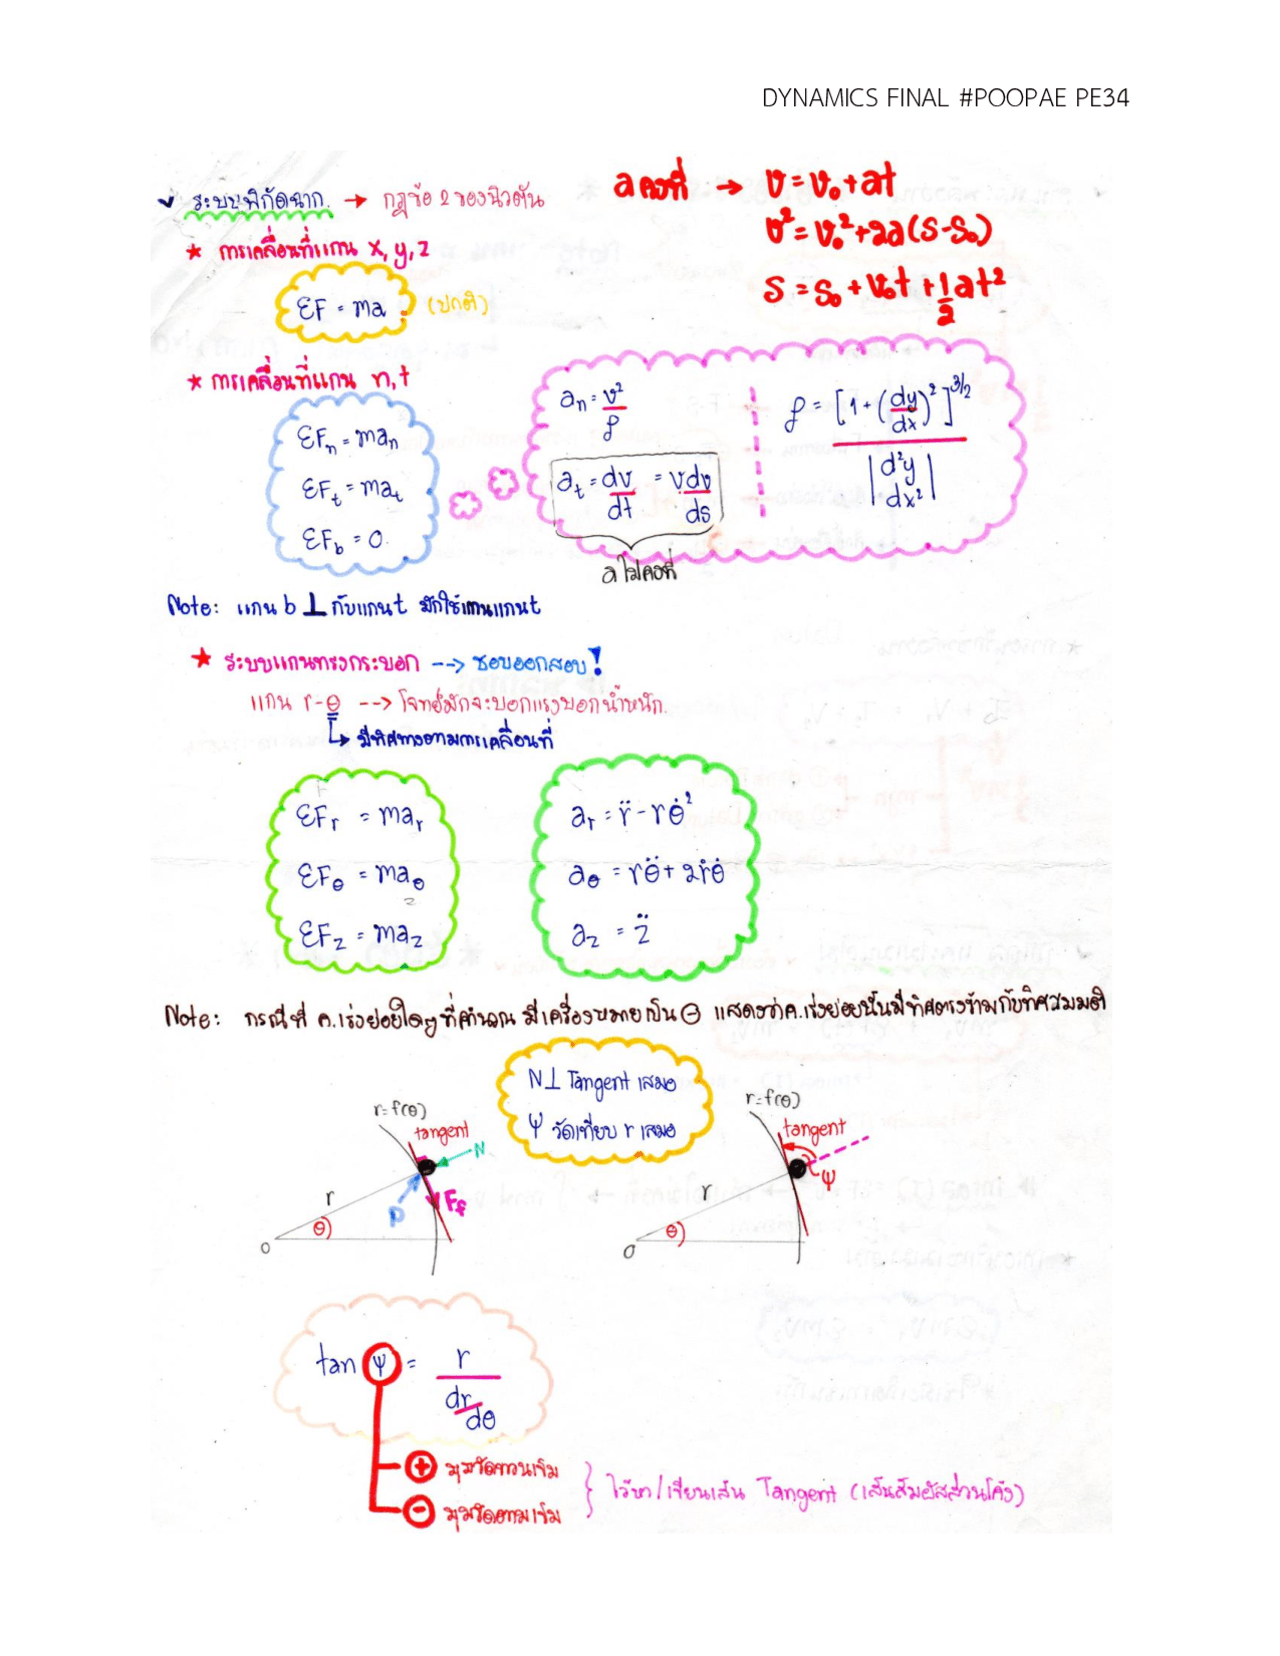 DYNAMICS FINAL #POOPAE PE34
✓ ระบบพิกัดฉาก → กฎข้อ 2 ของนิวตัน
a คงที่ → v = v₀ + at
v² = v₀² + 2a(s - s₀)
s = s₀ + v₀t + ½at²
★ การเคลื่อนที่แกน x, y, z
ΣF = ma (ปกติ)
★ การเคลื่อนที่แกน n, t
ΣFn = man
ΣFt = mat
ΣFb = 0
an = v²/ρ
at = dv/dt = vdv/ds
a ไม่คงที่
ρ = [1 + (dy/dx)²]^3/2 / |d²y/dx²|
Note: แกน b ⊥ กับแกน t มักใช้แทนแกน t
★ ระบบแกนทรงกระบอก --> ชอบออกสอบ!
แกน r-θ --> โจทย์มักจะบอกแรงบอกน้ำหนัก
↳ มีทิศทางตามการเคลื่อนที่
ΣFr = mar
ΣFθ = maθ
ΣFz = maz
ar = r̈ - rθ̇²
aθ = rθ̈ + 2ṙθ̇
az = z̈
Note: กรณีที่ ค.เร่งย่อยใดๆ ที่คำนวณ มีเครื่องหมายเป็น ⊖ แสดงว่า ค.เร่งย่อยนั้นมีทิศตรงข้ามกับทิศสมมติ
N ⊥ Tangent เสมอ
ψ วัดเทียบ r เสมอ
r = f(θ)
tangent
N
r
P
Ff
θ
O
r = f(θ)
tangent
ψ
r
θ
O
tan ψ = r / dr/dθ
⊕ มุมวัดทวนเข็ม
⊖ มุมวัดตามเข็ม
ไว้หา/เขียนเส้น Tangent (เส้นสัมผัสส่วนโค้ง)